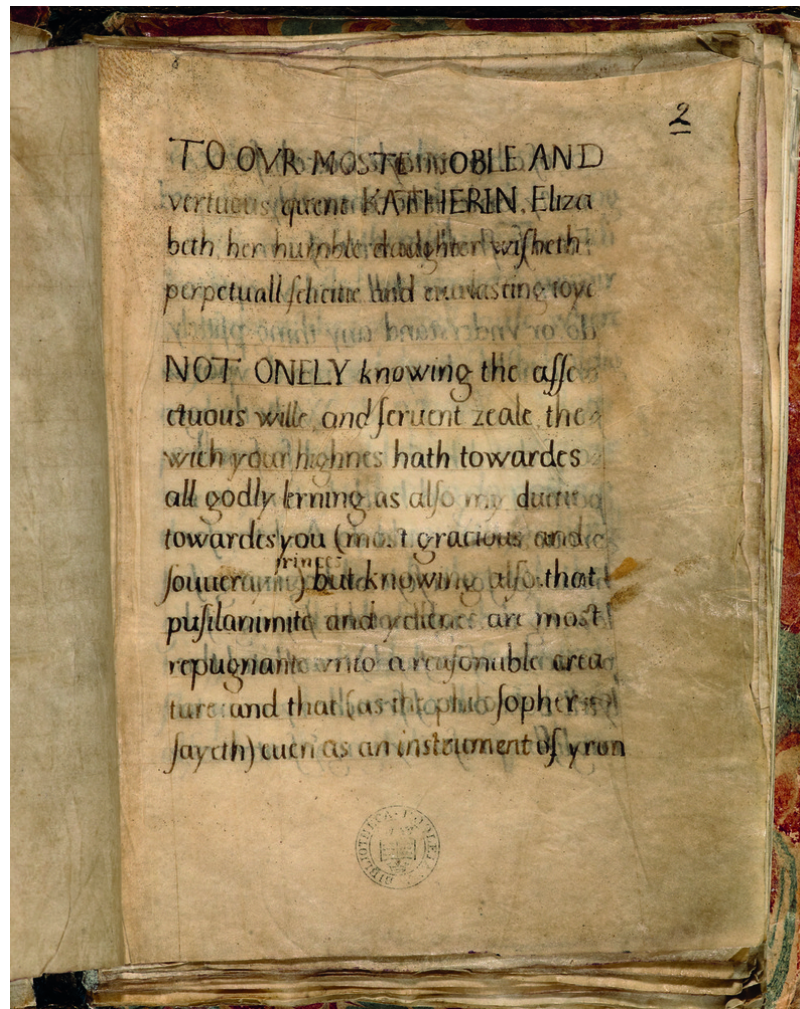 2
TO OVR MOSTE NOBLE AND
vertuous quene KATHERIN, Eliza
beth her humble daughter wisheth
perpetuall felicitie and everlasting ioye
NOT ONELY knowing the affe
ctuous wille, and feruent zeale, the
wich your highnes hath towardes
all godly lerning as also my duetie
towardes you (most gracious and
souuerain princes) but knowing also that
pusilanimite and ydlenes are most
repugnante vnto a reasonable crea
ture and that (as the philosopher
sayeth) euen as an instrument of yron